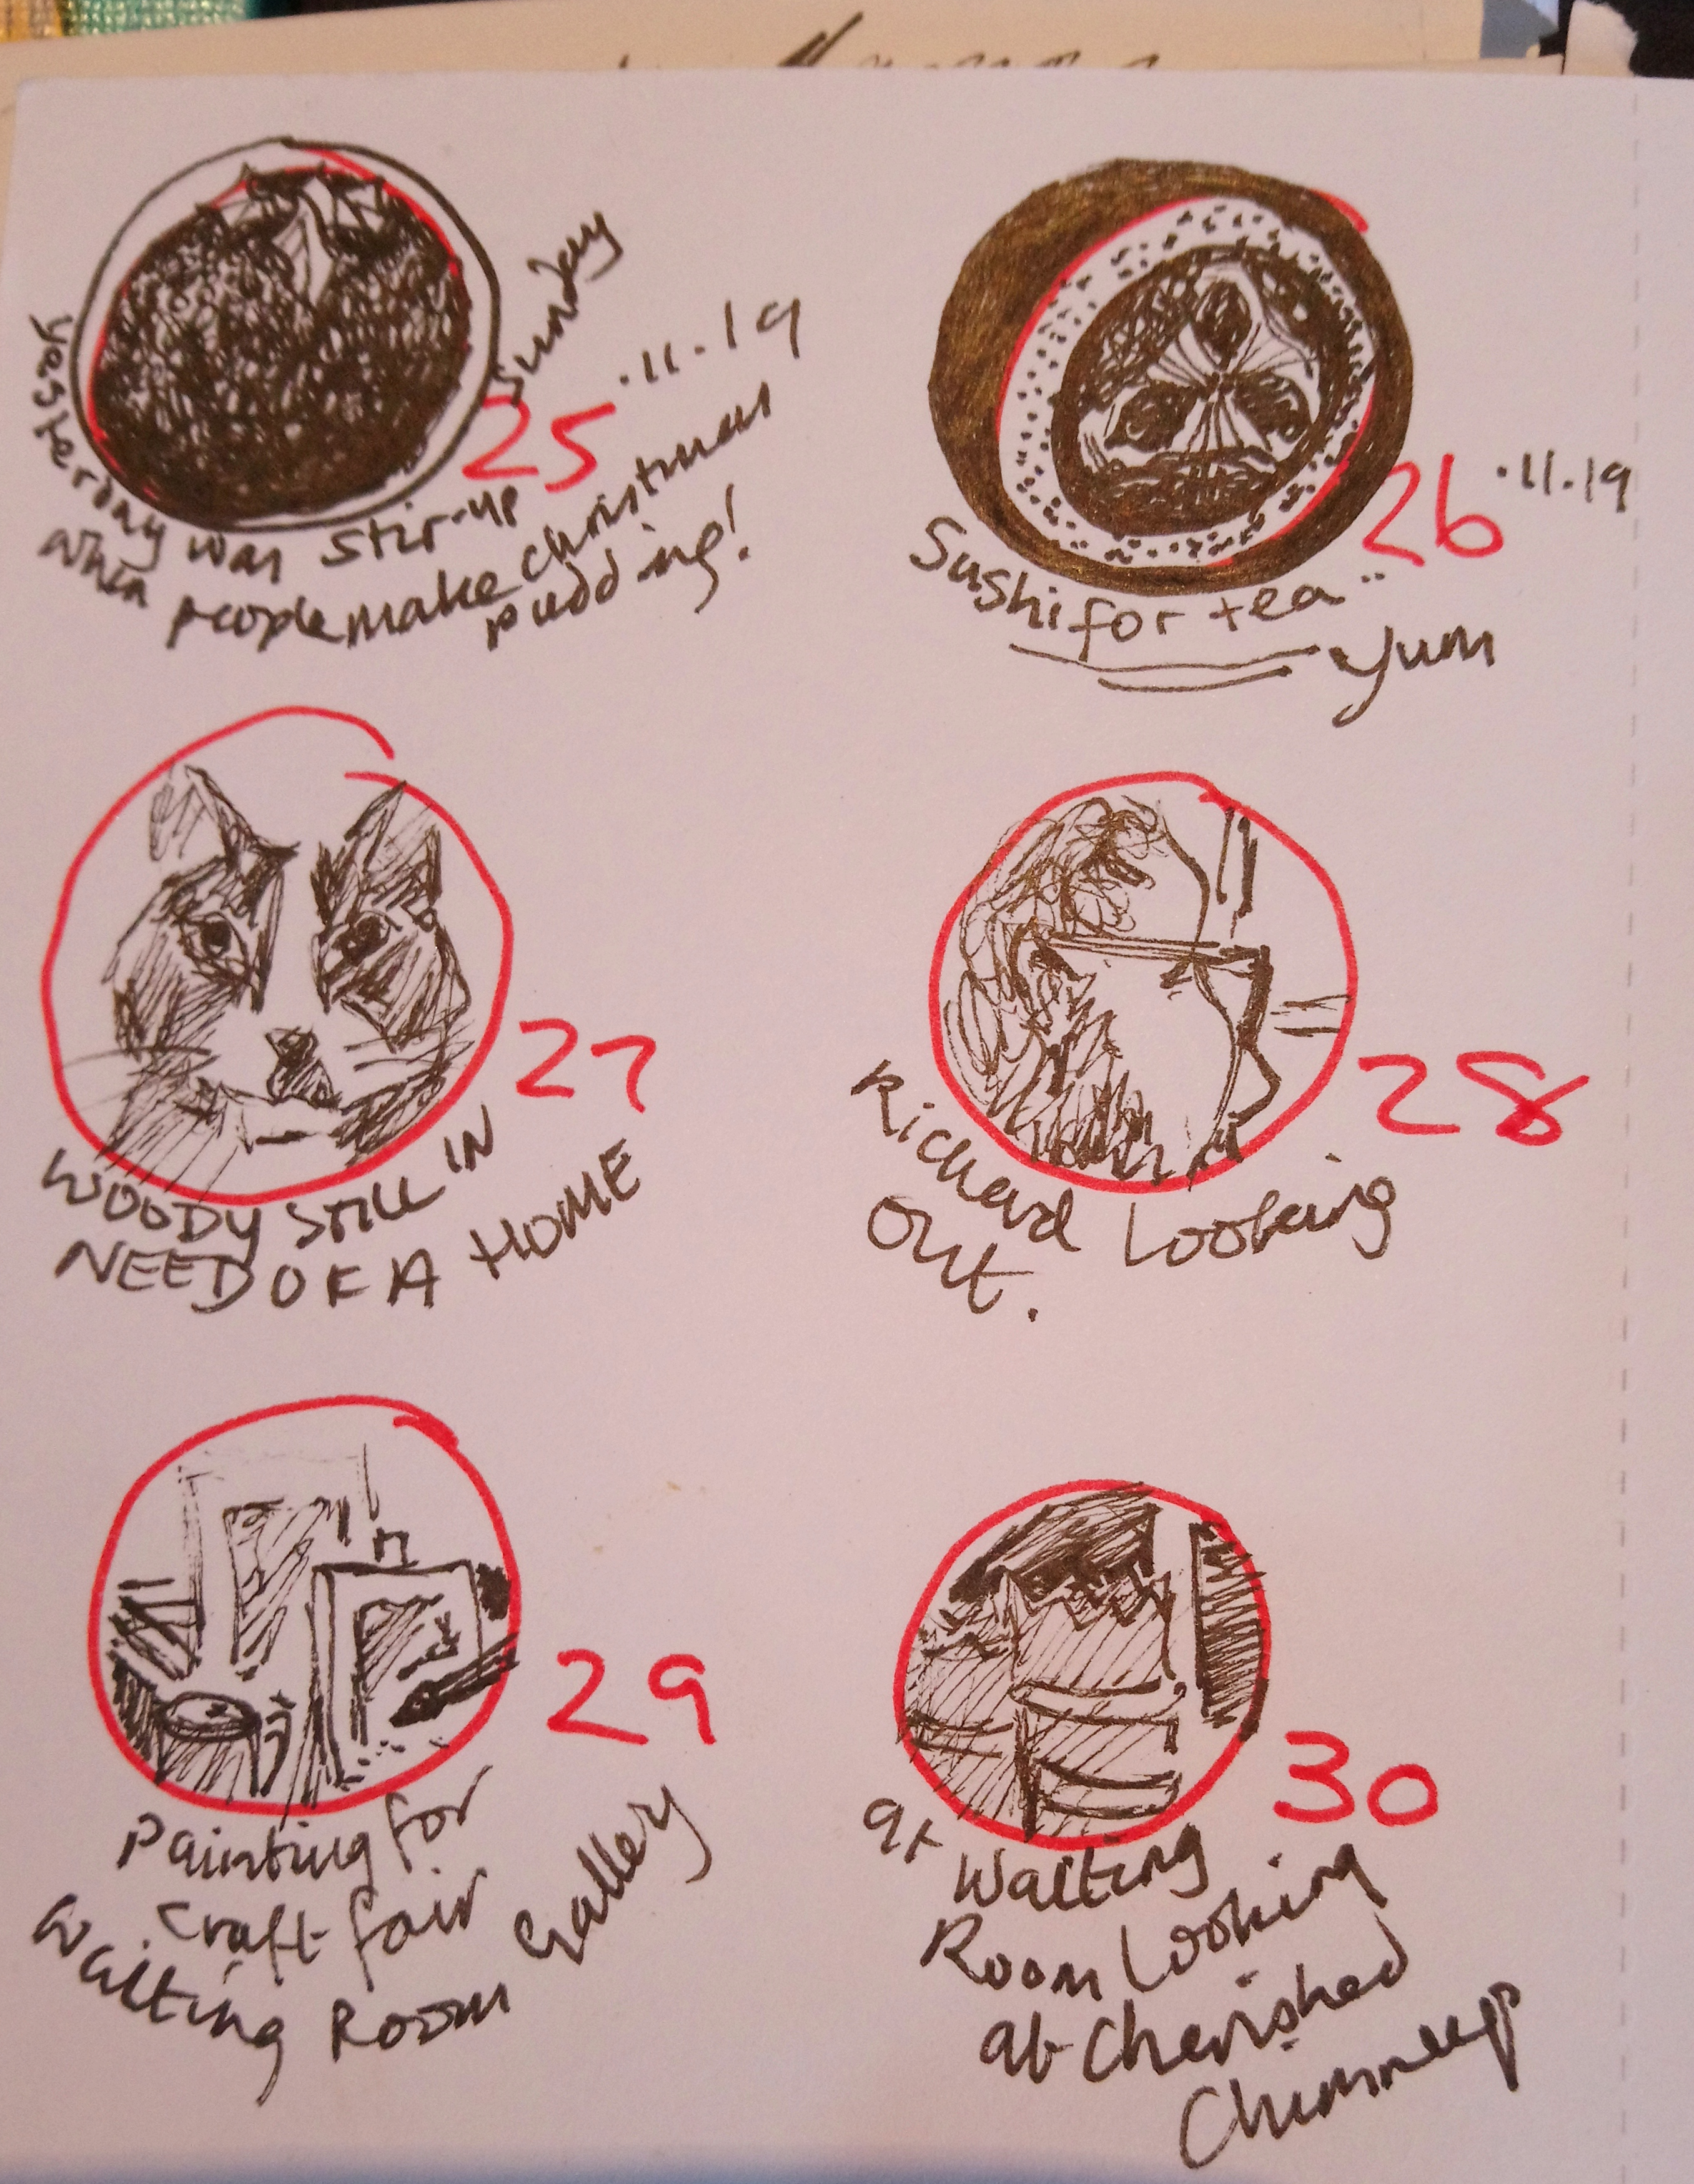 yesterday was stir-up Sunday
25.11.19
when people make christmas
pudding!
26.11.19
Sushi for tea..
Yum
27
WOODY STILL IN
NEED OF A HOME
28
Richard Looking
Out.
29
Painting for
craft fair
Waiting Room Gallery
30
at Waiting
Room Looking
at Cherished